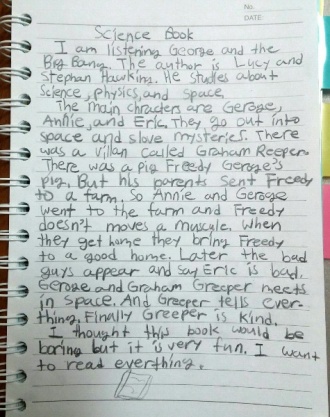 No.
DATE:
Science Book
I am listening George and the
Big Bang. The author is Lucy and
Stephan Hawking. He studies about
Science, physics, and space.
The main chracters are Geroge,
Annie, and Eric. They go out into
space and slove mysteries. There
was a villan called Graham Reeper.
There was a pig Freedy Geroge's
pig. But his parents sent Freedy
to a farm. So Annie and Geroge
went to the farm and Freedy
doesn't moves a muscule. When
they get home they bring Freedy
to a good home. Later the bad
guys appear and say Eric is bad.
Geroge and Graham Greeper meets
in space. And Greeper tells ever-
thing. Finally Greeper is kind.
I thought this book would be
boring but it is very fun. I want
to read everthing.